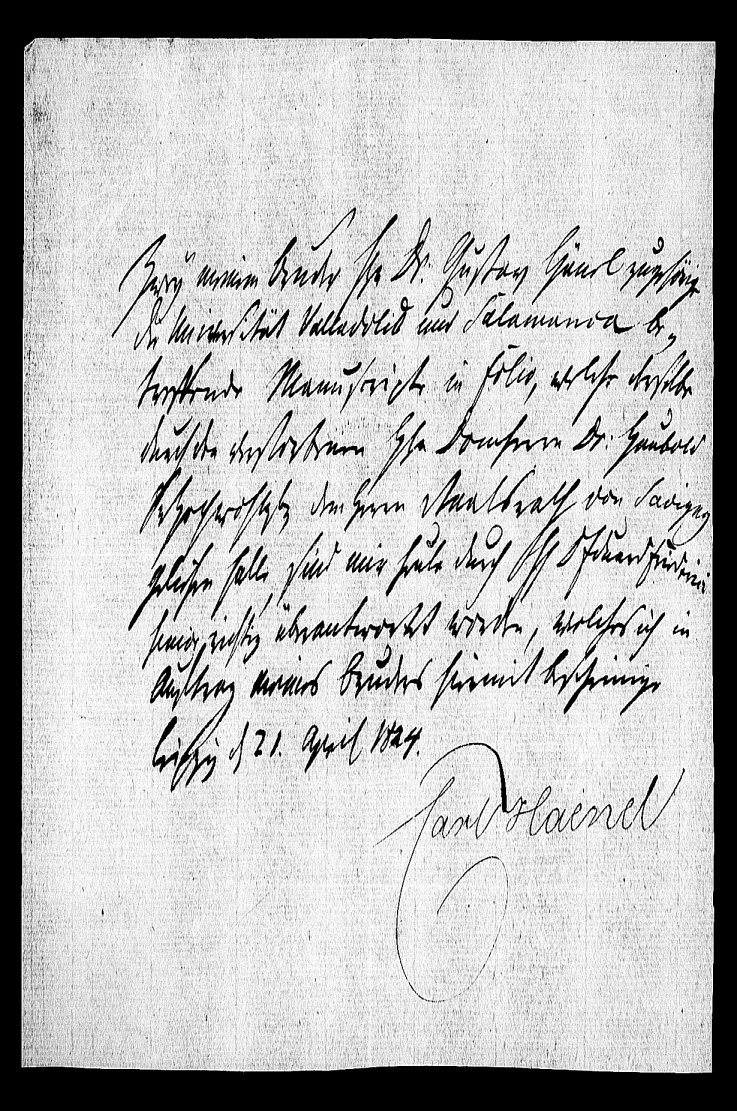 Zwey meinem Bruder Hr Dr. Gustav Hänel zugehörige
die Universität Valladolid und Salamanca be-
treffende Manuscripte in Folio, welche derselbe
durch den verstorbenen Hrn Domherrn Dr: Haubold
dem Herrn Staatsrath von Savigny
geliehen hatte, sind mir heute durch Eduard
richtig überantwortet worden, welches ich in
Auftrag meines Bruders hiermit bescheinige
Leipzig d 21. April 1824.
Carl Haenel